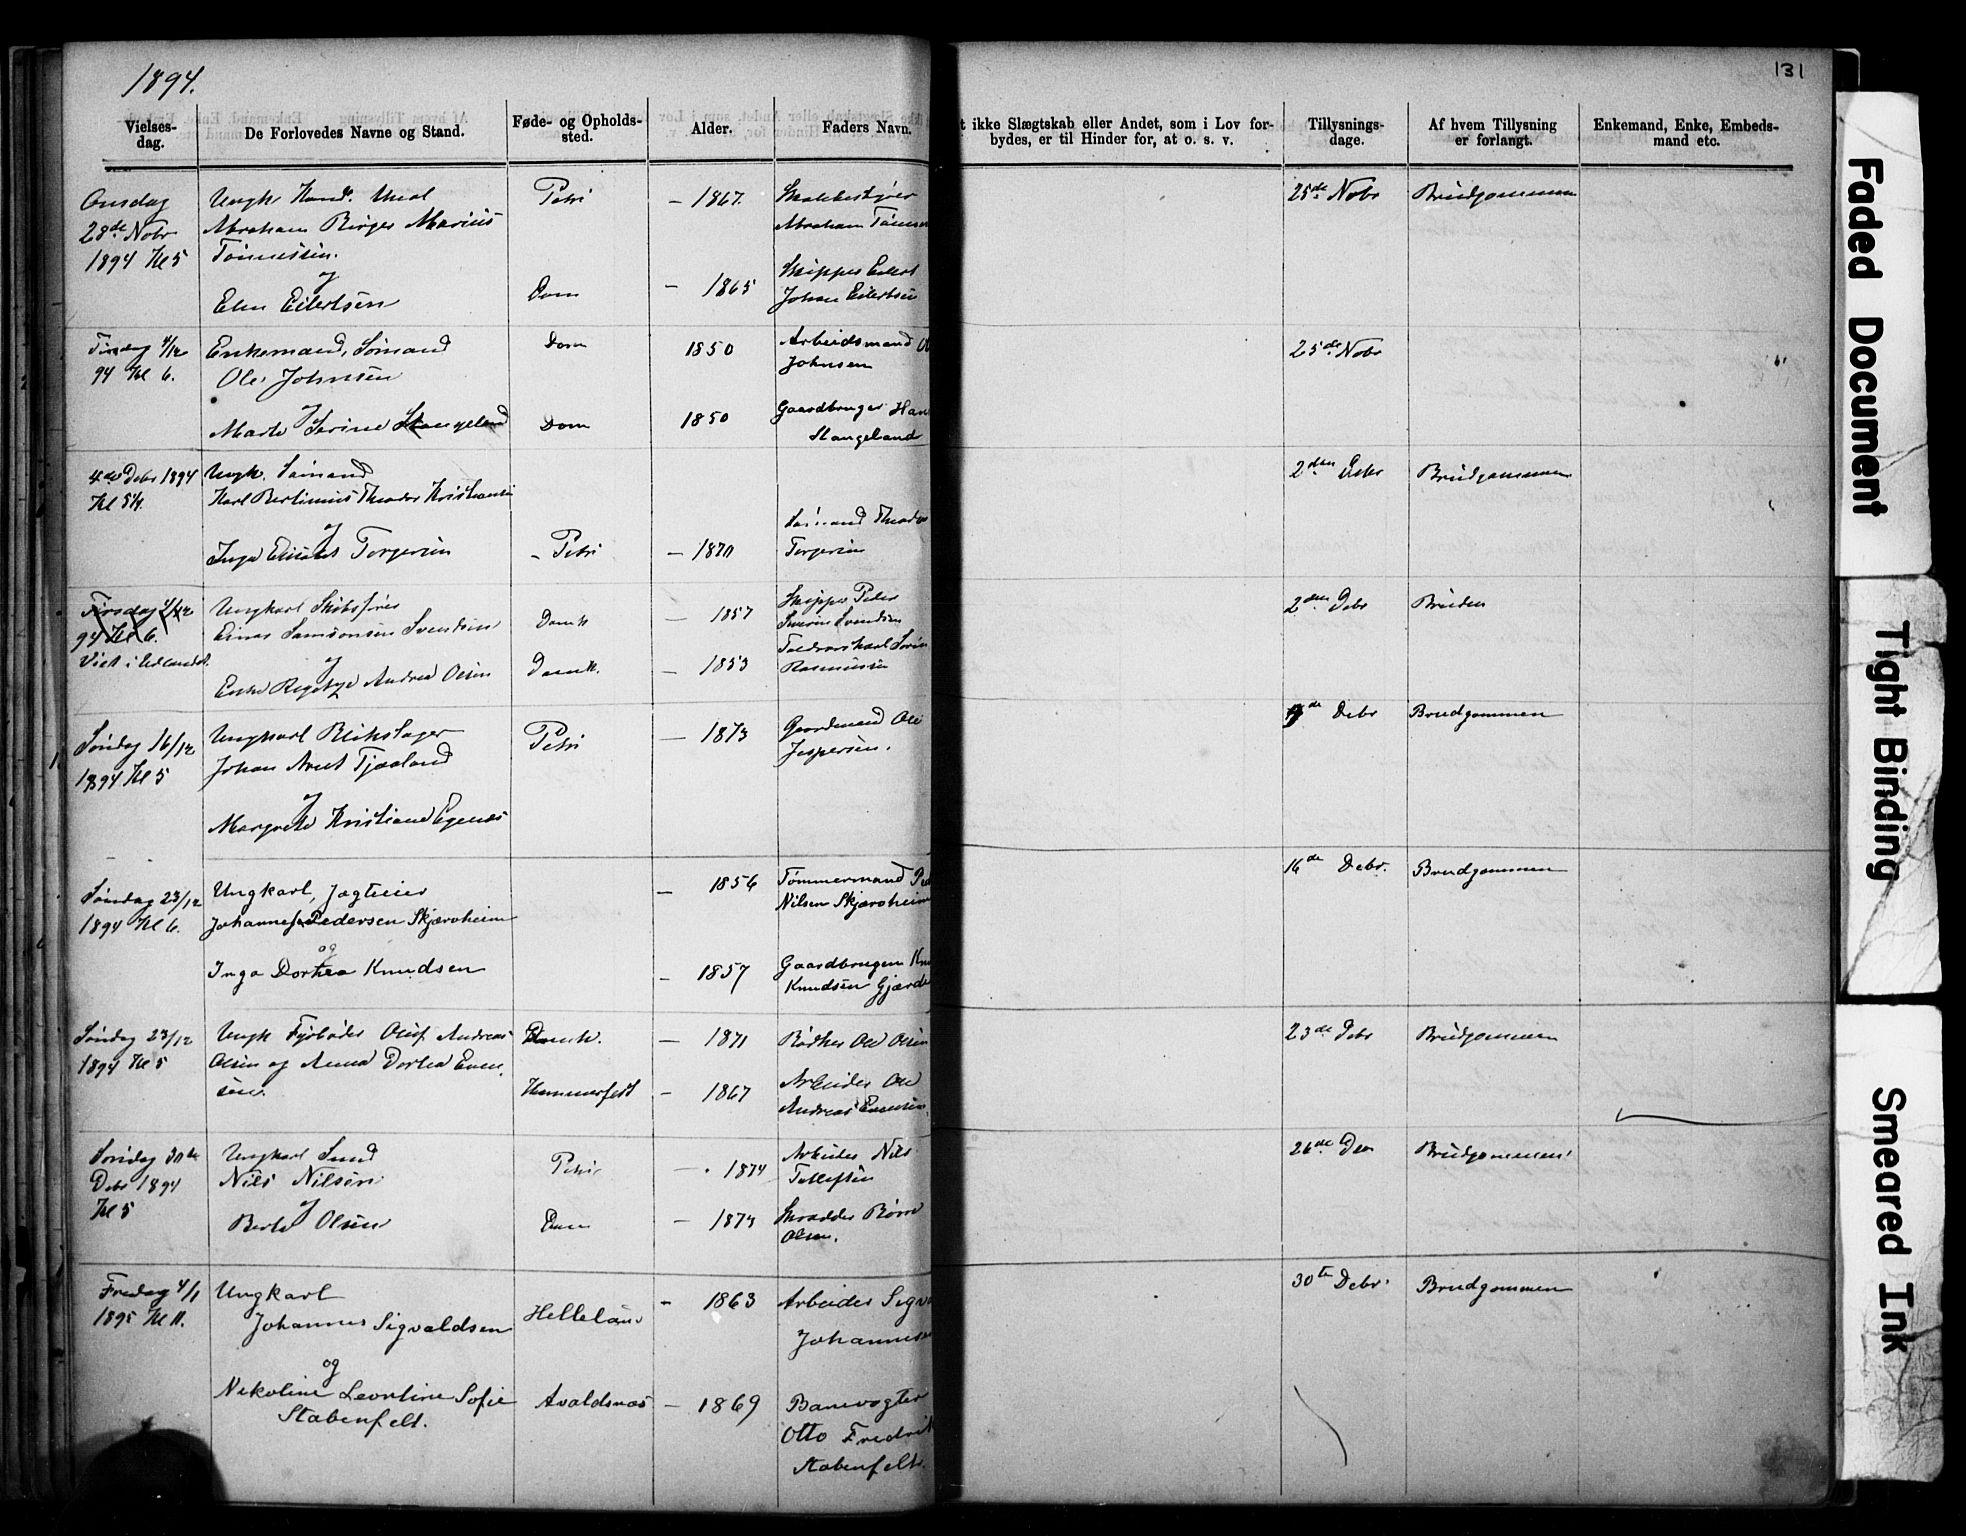 1894.
131
Vielses-
dag.
De Forlovedes Navne og Stand.
Føde- og Opholds-
sted.
Alder.
Faders Navn.
t ikke Slægtskab eller Andet, som i Lov for-
bydes, er til Hinder for, at o. s. v.
Tillysnings-
dage.
Af hvem Tillysning
er forlangt.
Enkemand, Enke, Embeds-
mand etc.
Onsdag
28de Nobr
1894 Kl 5
Ungk.
Abraham Birger Marius
Tønnessen.
og
Elen Eilertsen
Petri
Dom
- 1867.
- 1865
Abraham
Skipper
Johan Eilertsen
25de Nobr
Brudgommen
Tirsdag 4/12
94 Kl 6.
Enkemand, Sømand
Ole Johnsen
og
Marte Serine Stangeland
Dom
Dom
1850
1850
Arbeidsmand
Johnsen
Gaardbruger Han
Stangeland
25de Nobr
4de Debr 1894
Kl 5½.
Ungk. Sømand
Karl Bertinius Theodor Kristiansen
og
Inga Elisabet Torgersen
- Petri
- 1870
Sømand Theodor
Torgersen
2den Debr
Brudgommen
Tirsdag 4/12
94 Kl 6.
Viet i Udlandet.
Ungkarl Skibsfører
Einar Samsonsen Svendsen
og
Enke Regitze Andrea Olsen
Domk
Domk.
- 1857
- 1853
Skipper Peder
Severin Svendsen
Rasmussen
2den Debr
Bruden
Søndag 16/12
1894 Kl 5
Ungkarl Blikslager
Johan Arnt Tjaaland
og
Margrete Kristiane Egenæs
Petri
- 1873
Gaardmand Ole
Jespersen.
9de Debr
Brudgommen
Søndag 23/12
1894 Kl 6.
Ungkarl, Jagteier
Johannes Pedersen Skjæroheim
og
Inga Dorthea Knudsen
- 1856
- 1857
Tømmermand Ped
Nilsen Skjæroheim
Gaardbrugen Knu
Knudsen Gjærde
16de Debr.
Brudgommen
Søndag 23/12
1894 Kl 5
Ungk Fyrbøder Oluf Andreas
Olsen og Anna Dorthea Even
sen.
Domk.
Hammerfest
- 1871
- 1867
Rødker Ole Olsen
Arbeider Ole
Andreas Evensen.
23de Debr
Brudgommen
Søndag 30te
Debr 1894
Kl 5
Ungkarl
Nils Nilsen
og
Berte Olsen
Petri
Dom
- 1874
- 1873
Arbeider Nils
Tollefsen
Skrædder Bjørn
Olsen.
26de Dec
Brudgommen
Fredag 4/1
1895 Kl 11.
Ungkarl
Johannes Sigvaldsen
og
Nikoline Leontine Sofie
Stabenfelt.
Helleland
Avaldsnæs
- 1863
- 1869
Arbeider Sigva
Johannesen
Banevogter
Otto Fredrik
Stabenfelt.
30te Debr.
Brudgommen
Faded Document
Tight Binding
Smeared Ink